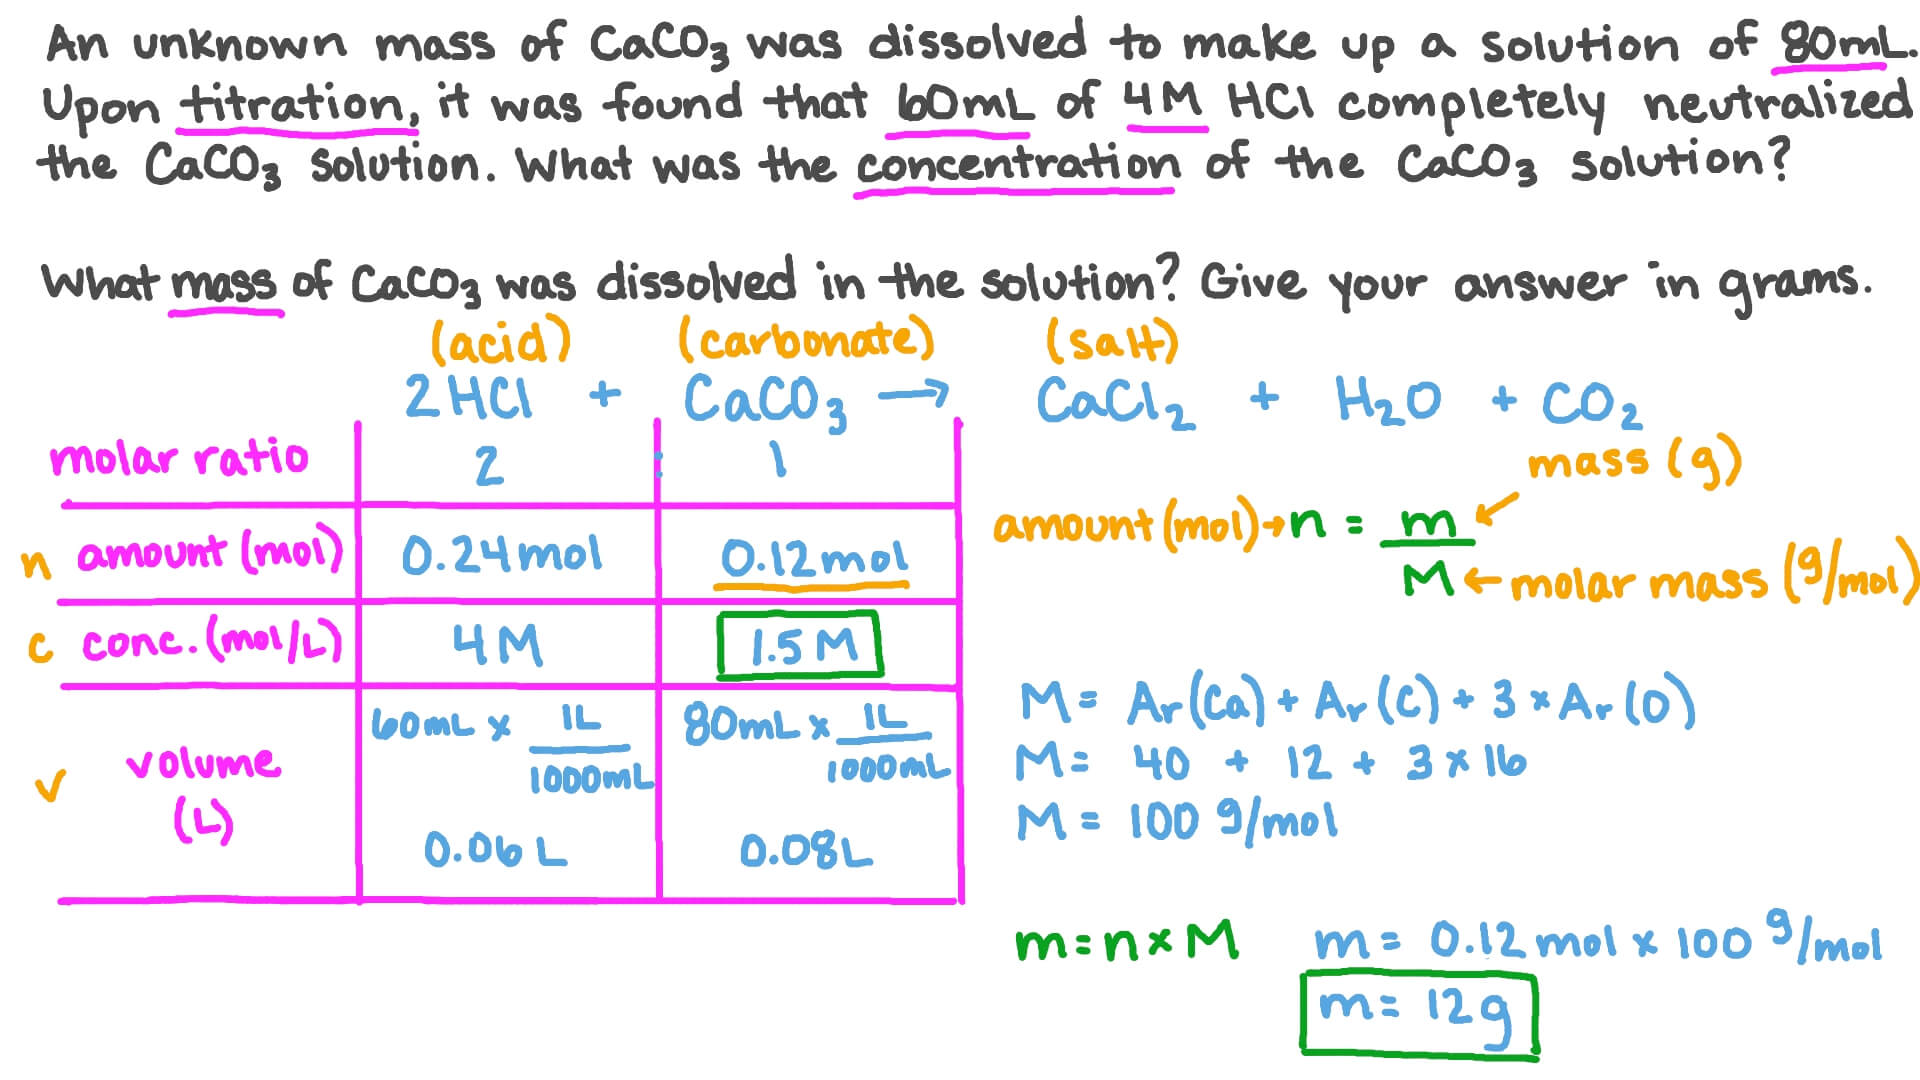 An unknown mass of CaCO₃ was dissolved to make up a solution of 80mL.
Upon titration, it was found that 60mL of 4M HCl completely neutralized
the CaCO₃ solution. What was the concentration of the CaCO₃ solution?
What mass of CaCO₃ was dissolved in the solution? Give your answer in grams.
(acid) (carbonate) (salt)
2HCl + CaCO₃ → CaCl₂ + H₂O + CO₂
molar ratio 2 : 1
n amount (mol) 0.24mol 0.12mol
c conc. (mol/L) 4M 1.5M
v volume (L)
60mL x 1L/1000mL 80mL x 1L/1000mL
0.06L 0.08L
mass (g)
amount (mol) → n = m/M ← molar mass (g/mol)
M = Ar(Ca) + Ar(C) + 3 x Ar(O)
M = 40 + 12 + 3 x 16
M = 100 g/mol
m = n x M m = 0.12 mol x 100 g/mol
m = 12g